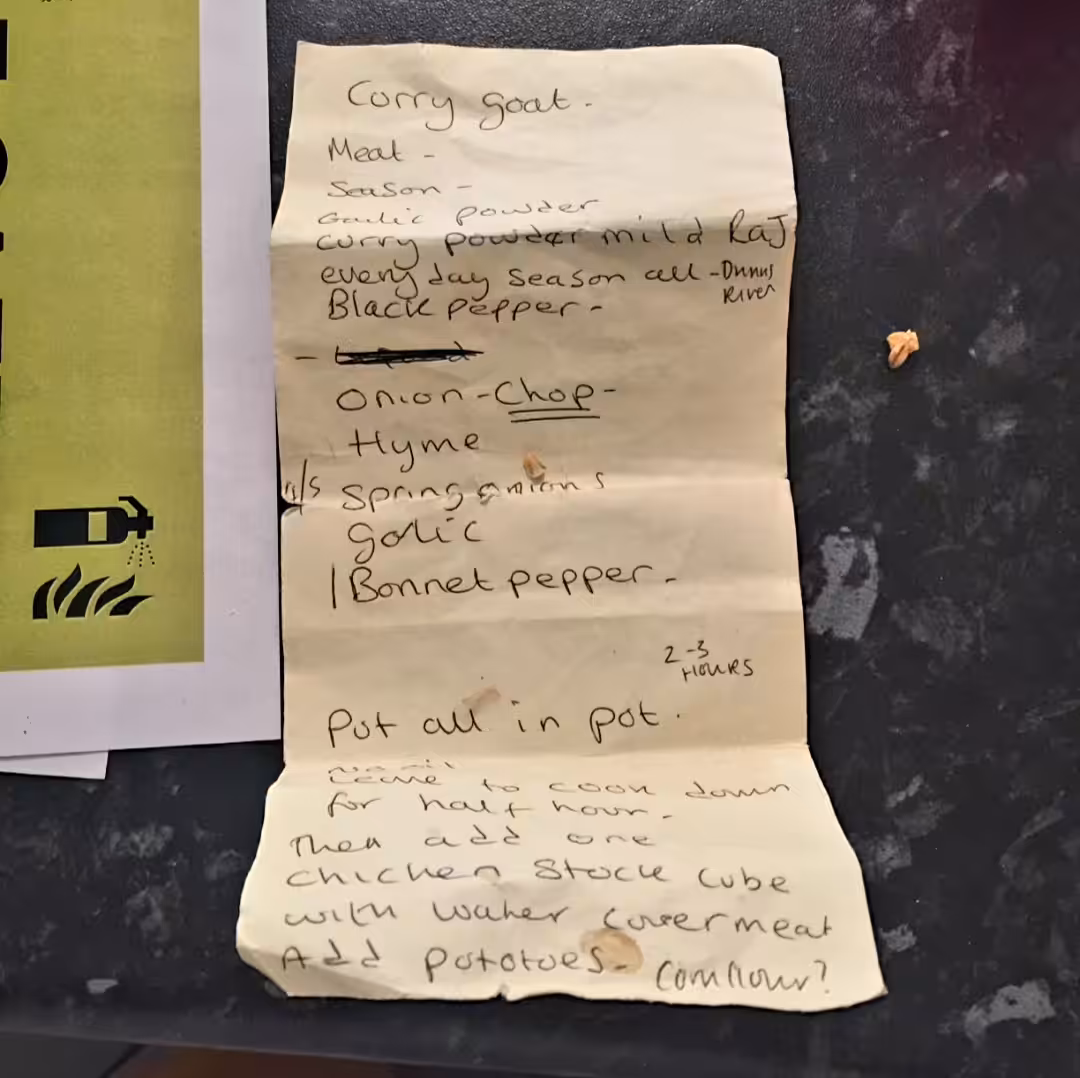 Curry goat.
Meat -
Season -
Garlic powder
curry powder mild RaJ
everyday season all - Dunns
River
Black pepper -
-
Onion - Chop -
Hyme
Spring onions
Golic
1 Bonnet pepper.
2-3
HOURS
Put all in pot.
Leave to cook down
for half hour.
Then add one
chicken Stock cube
with water cover meat
Add pototoes - Cornflour?